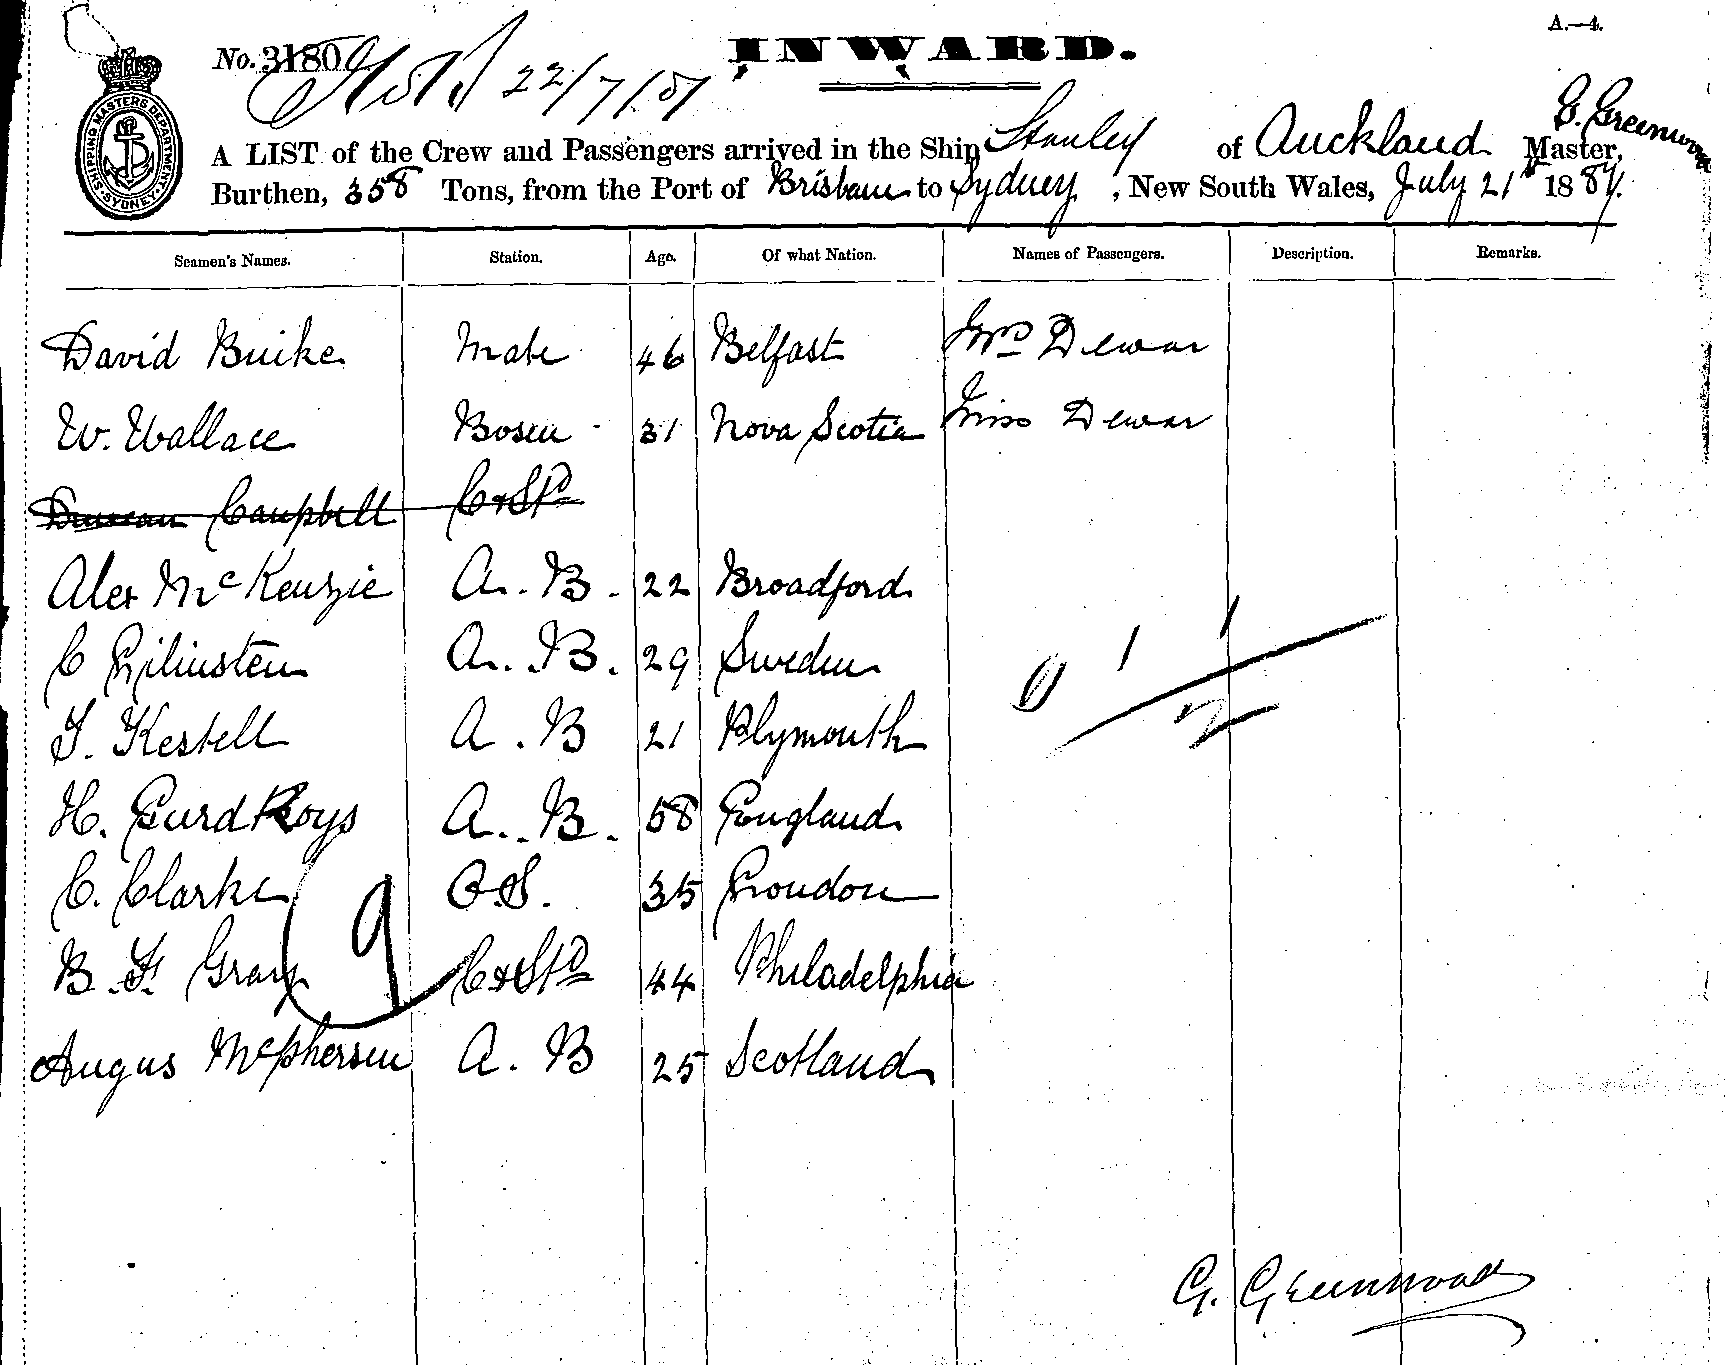 A.—4.
No. 31804 INWARD.
22/7/87
G. Greenwood
A LIST of the Crew and Passengers arrived in the Ship Stanley of Auckland Master,
Burthen, 358 Tons, from the Port of Brisbane to Sydney, New South Wales, July 21st 1887.
SHIPPING MASTERS DEPARTMENT SYDNEY
Seamen's Names. Station. Age. Of what Nation. Names of Passengers. Description. Remarks.
David Buike Mate 46 Belfast Mrs Dewar
W. Wallace Bosen 31 Nova Scotia Miss Dewar
Duncan Campbell C & Std
Alex McKenzie A. B. 22 Broadford
C A. B. 29 Sweden
T. Kestell A. B 21 Plymouth
H. A. B. 58 England
C. Clarke O.S. 35 London
B. F. Gray C & Std 44 Philadelphia
Angus McPhersen A. B 25 Scotland
0 1 1
2
9
G. Greenwood